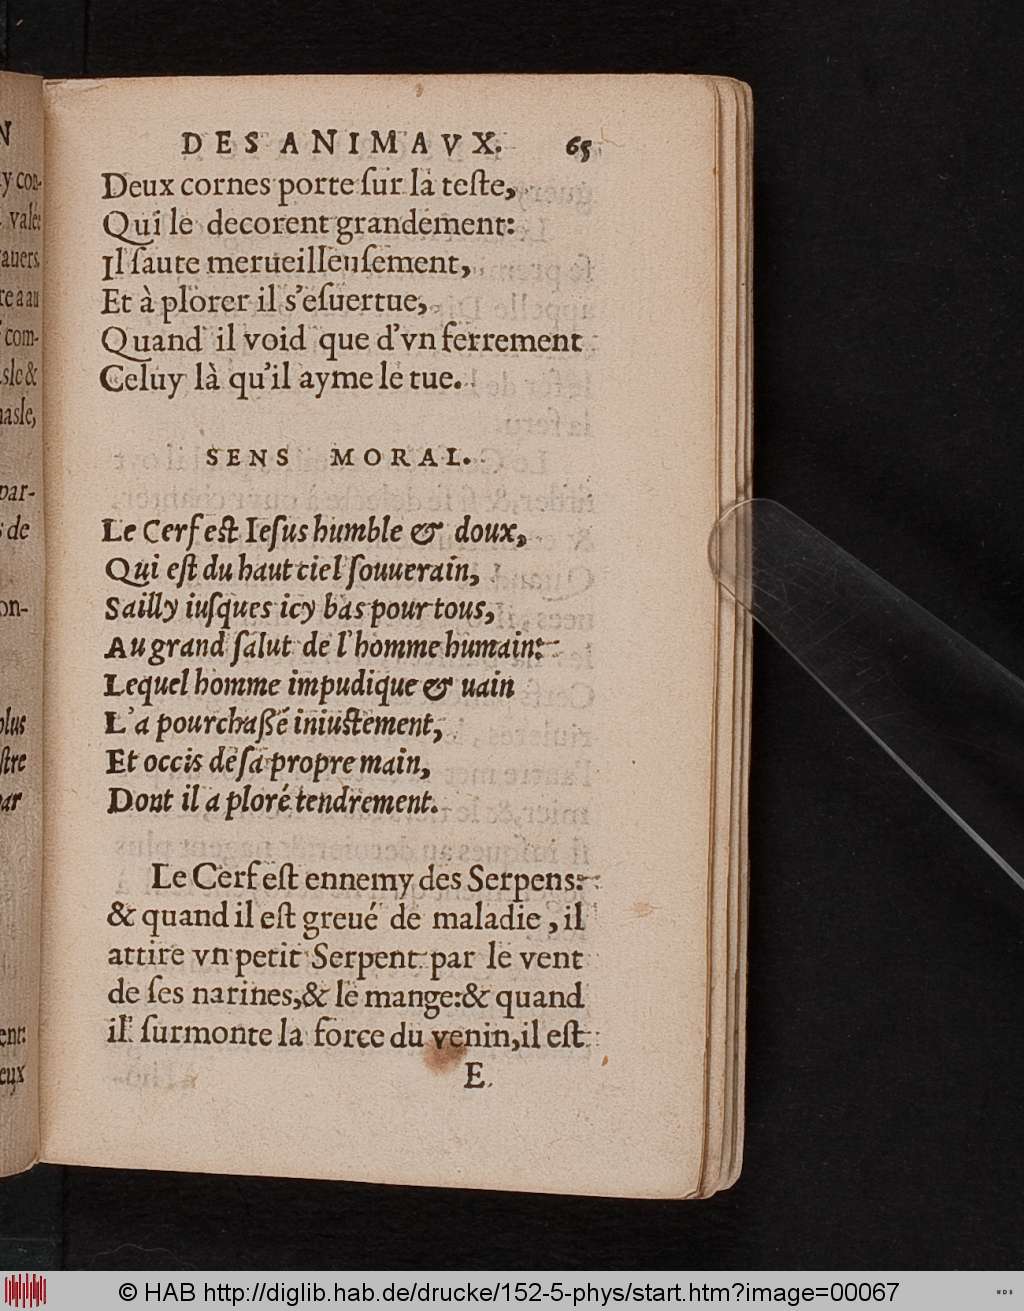 N
y con-
valé:
auers.
re a au
com-
sle &
masle,
par-
s de
on-
plus
stre
par
ent:
eux
DES ANIMAVX. 65
Deux cornes porte ſur la teſte,
Qui le decorent grandement:
Il ſaute merueilleuſement,
Et à plorer il s'eſuertue,
Quand il void que d'vn ferrement
Celuy là qu'il ayme le tue.
SENS MORAL.
Le Cerf eſt Ieſus humble & doux,
Qui eſt du haut ciel ſouuerain,
Sailly iuſques icy bas pour tous,
Au grand ſalut de l'homme humain:
Lequel homme impudique & uain
L'a pourchaßé iniuſtement,
Et occis de ſa propre main,
Dont il a ploré tendrement.
Le Cerf eſt ennemy des Serpens:
& quand il eſt greué de maladie, il
attire vn petit Serpent par le vent
de ſes narines, & le mange: & quand
il ſurmonte la force du venin, il eſt
E
© HAB http://diglib.hab.de/drucke/152-5-phys/start.htm?image=00067